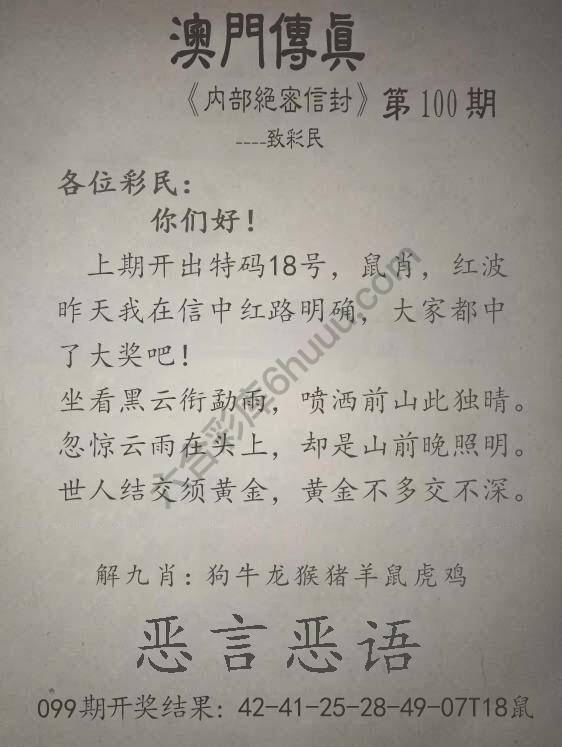 澳門傳眞
《内部絕密信封》第100期
----致彩民
各位彩民：
你们好！
上期开出特码18号，鼠肖，红波
昨天我在信中红路明确，大家都中
了大奖吧！
坐看黑云衔勐雨，喷洒前山此独晴。
忽惊云雨在头上，却是山前晚照明。
世人结交须黄金，黄金不多交不深。
解九肖：狗牛龙猴猪羊鼠虎鸡
恶言恶语
099期开奖结果：42-41-25-28-49-07T18鼠
六合彩库6huuu.com